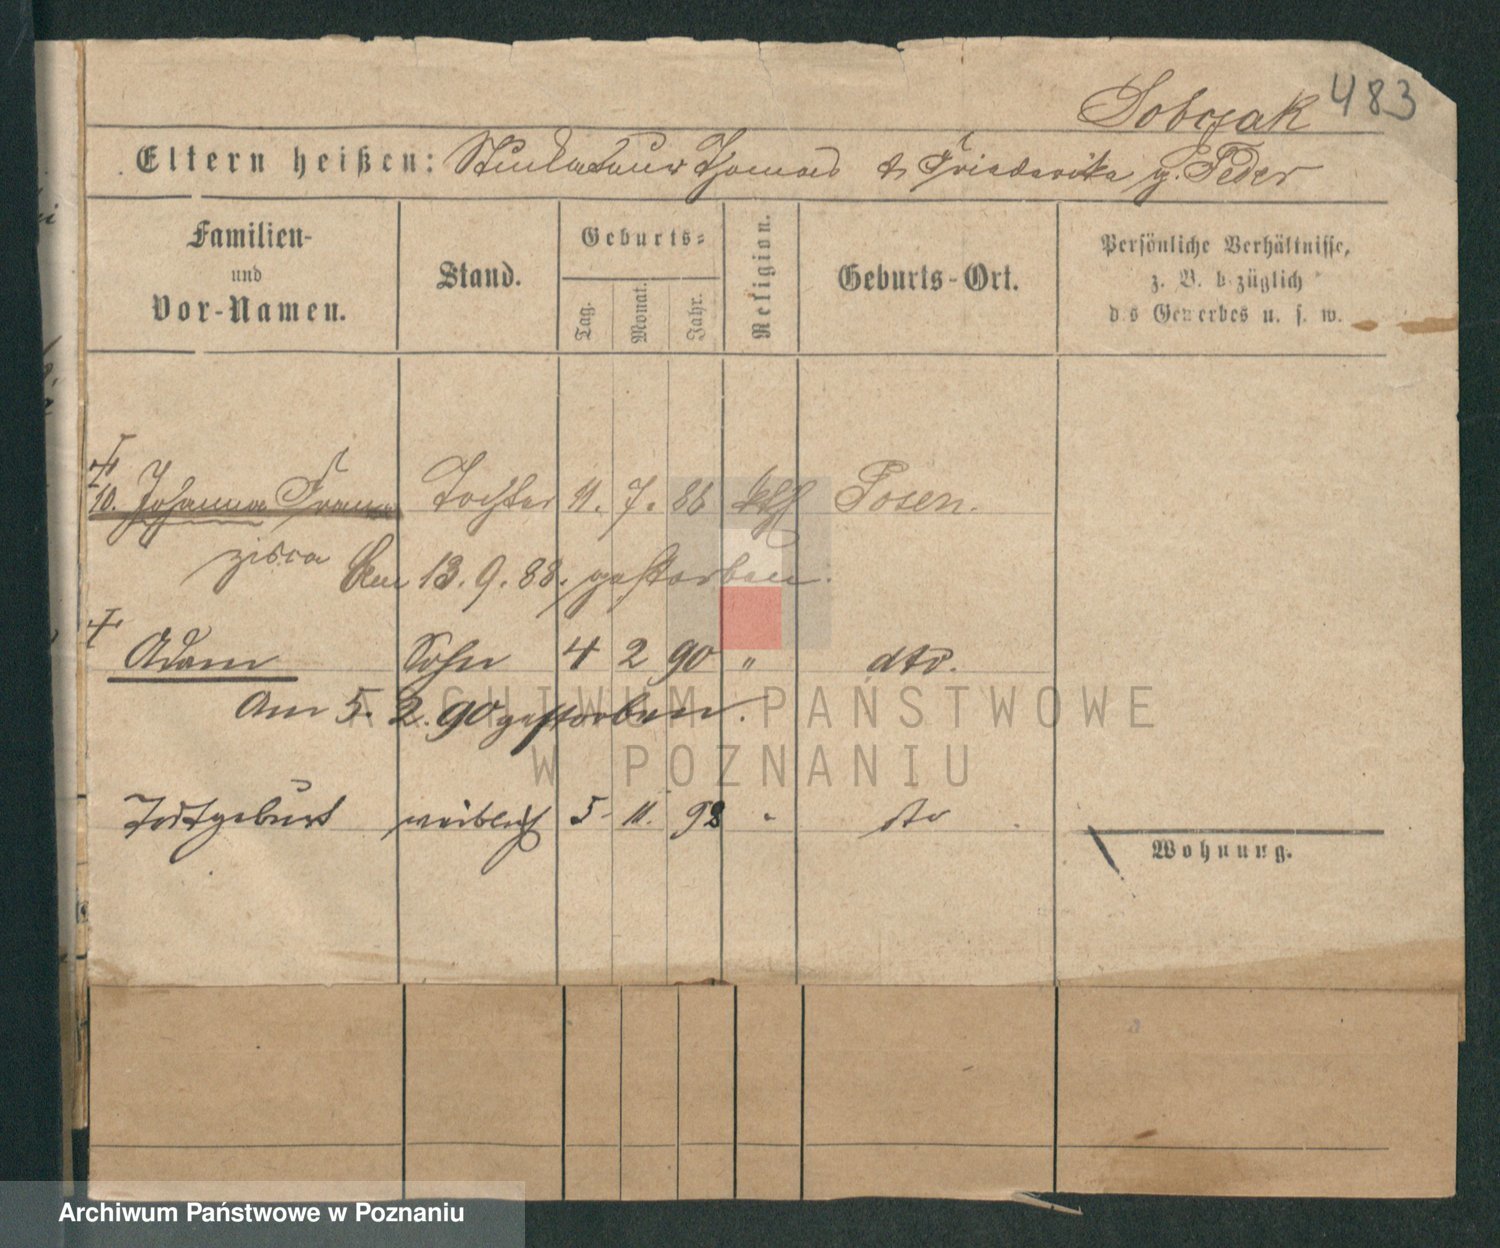 Sobczak 483
Eltern heißen: Stuckateur Thomas & Friederika g. Feder
Familien-
und
Vor-Namen.
Stand.
Geburts-
Tag.
Monat.
Jahr.
Religion.
Geburts-Ort.
Persönliche Verhältnisse,
z. B. bezüglich
des Gewerbes u. s. w.
10. Johanna Fran Tochter 11. 7. 86 kth Posen.
zisca Am 13. 9. 88. gestorben.
Adam Sohn 4 2 90 " dto.
Am 5. 2. 90 gestorben.
Todtgeburt weiblich 5. 11. 92 dto
Wohnung.
ARCHIWUM PAŃSTWOWE
W POZNANIU
Archiwum Państwowe w Poznaniu